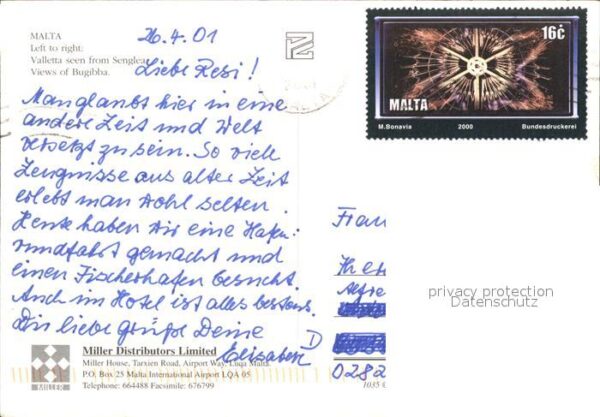 MALTA
Left to right:
Valletta seen from Senglea
Views of Bugibba.
26.4.01
Liebe Resi!
Man glaubt hier in eine
andere Zeit und Welt
versetzt zu sein. So viele
Zeugnisse aus alter Zeit
erlebt man wohl selten.
Heute haben wir eine Hafen-
rundfahrt gemacht und
einen Fischerhafen besucht.
Auch im Hotel ist alles bestens.
Dir liebe grüße Deine
Elisabeth
Miller Distributors Limited
Miller House, Tarxien Road, Airport Way, Luqa Malta.
P.O. Box 25 Malta International Airport LQA 05
Telephone: 664488 Facsimile: 676799
MILLER
16c
MALTA
M.Bonavia 2000 Bundesdruckerei
Frau
D
0282
1035
privacy protection
Datenschutz